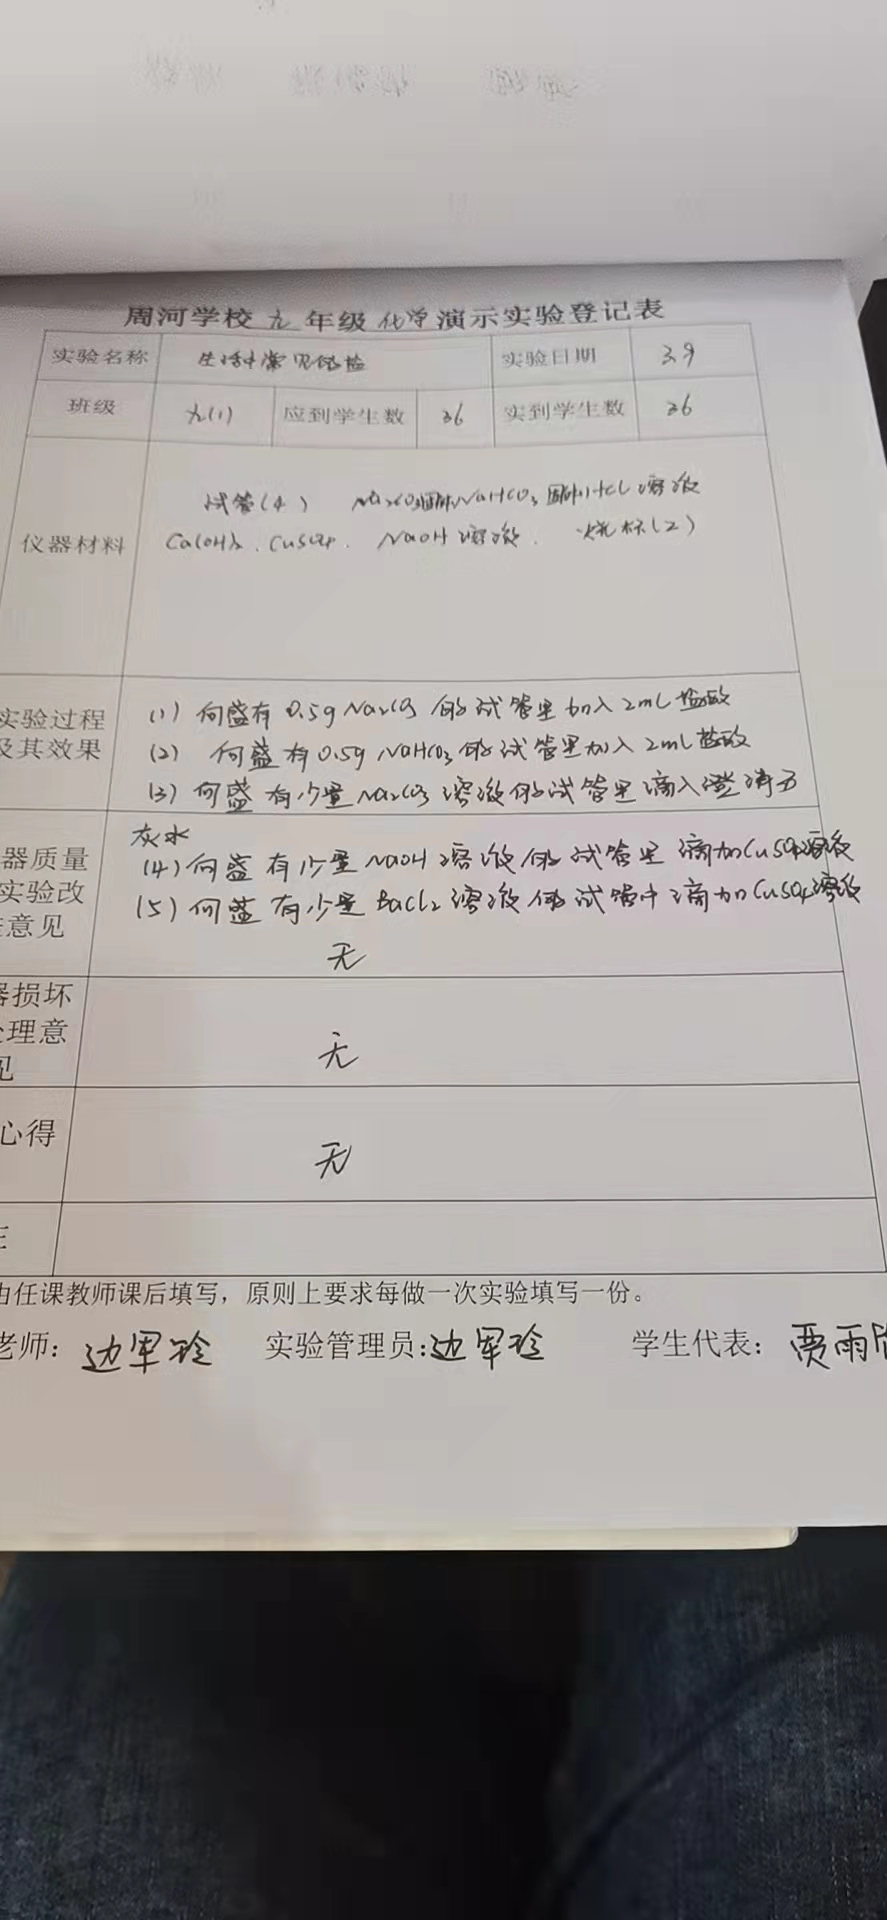 周河学校 九 年级 化学 演示实验登记表
实验名称 生活中常见的盐 实验日期 3.9
班级 九(1) 应到学生数 36 实到学生数 36
试管(4) Na₂CO₃固体 NaHCO₃固体 HCl溶液
仪器材料 Ca(OH)₂、CuSO₄、NaOH溶液、烧杯(2)
实验过程 (1) 向盛有0.5g Na₂CO₃的试管里加入2mL盐酸
及其效果 (2) 向盛有0.5g NaHCO₃的试管里加入2mL盐酸
(3) 向盛有少量Na₂CO₃溶液的试管里滴入澄清石
灰水
器质量 (4) 向盛有少量NaOH溶液的试管里滴加CuSO₄溶液
实验改 (5) 向盛有少量BaCl₂溶液的试管中滴加CuSO₄溶液
意见 无
器损坏
处理意 无
见
心得 无
由任课教师课后填写，原则上要求每做一次实验填写一份。
老师：边军玲 实验管理员:边军玲 学生代表：贾雨